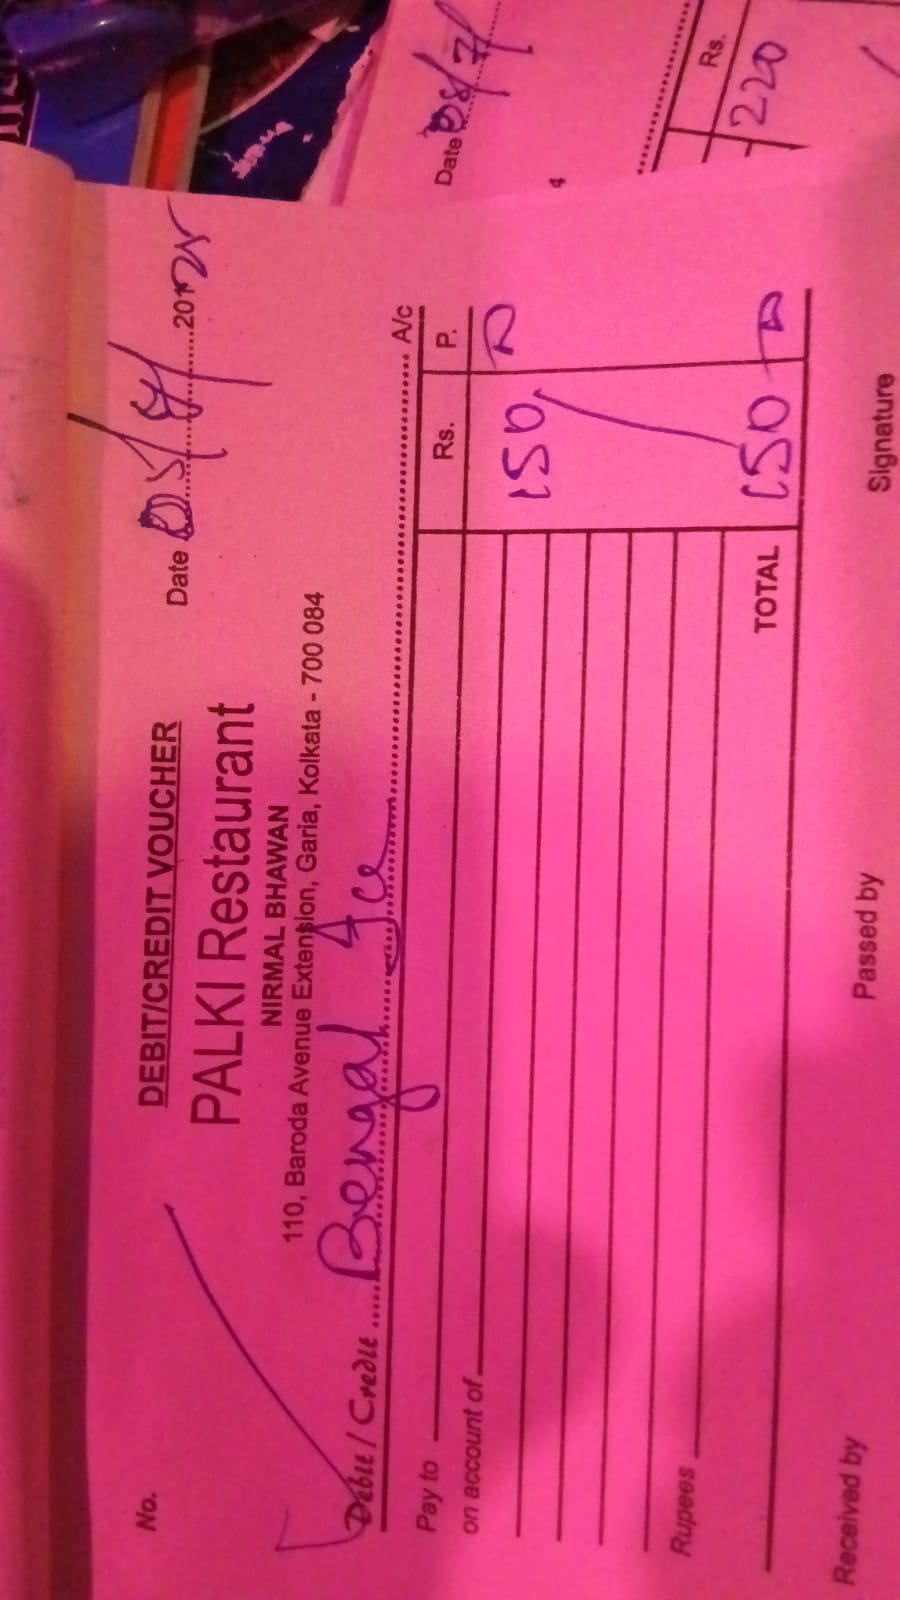 No.
DEBIT/CREDIT VOUCHER
Date 05/7/2025
PALKI Restaurant
NIRMAL BHAWAN
110, Baroda Avenue Extension, Garia, Kolkata - 700 084
Debit / Credit Bengal Ice A/c
Pay to Rs. P.
on account of
150
Rupees
TOTAL 150
Received by Passed by Signature
Date 05/7
Rs.
220